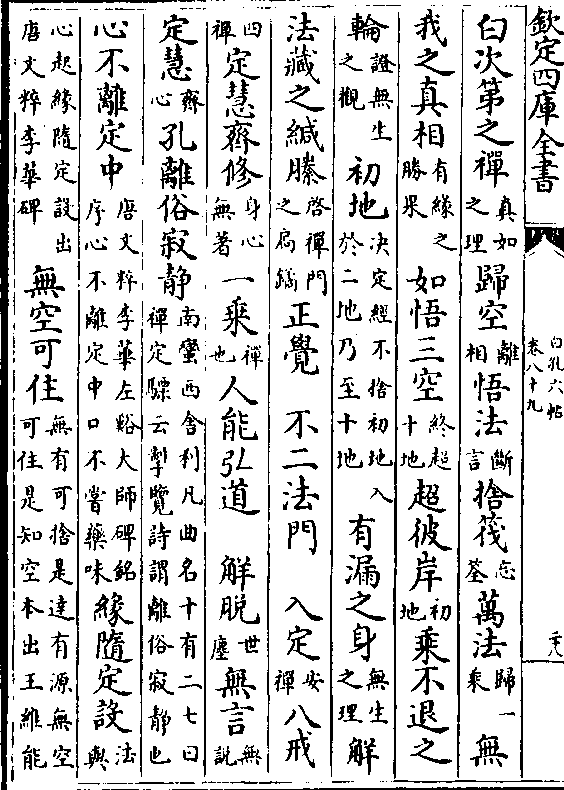 欽定四庫全書
白孔六帖
卷八十九
曰次第之禪真如之理歸空離相悟法斷言捨筏忘筌萬法歸一乘無
我之真相有緣之勝果如悟三空終超十地超彼岸初地乘不退之
輪證無生之觀初地決定經不捨初地入於二地乃至十地有漏之身無生之理解
法藏之緘縢啓禪門之扃鐍正覺 不二法門 入定安禪八戒
四禪定慧齊修身心無著一乘禪也人能弘道 解脫世塵無言無說
定慧齊心孔離俗寂靜南蠻西舍利凡曲名十有二七曰禪定驃云掣覽詩謂離俗寂靜也
心不離定中唐文粹李華左谿大師碑銘序心不離定中口不嘗藥味緣隨定設法與
心起緣隨定設出唐文粹李華碑無空可住無有可捨是達有源無空可住是知空本出王維能